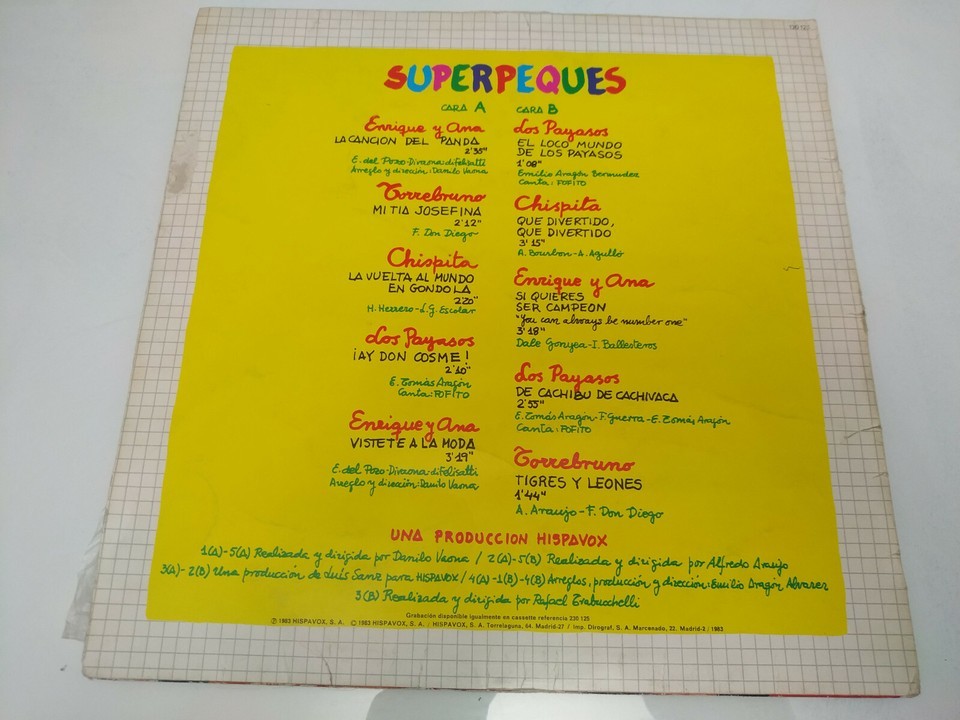 SUPERPEQUES
CARA A
Enrique y Ana
LA CANCION DEL PANDA
2'35"
E. del Pozo-Diraona di Felisatti
Arreglo y dirección: Danilo Vaona
Torrebruno
MI TIA JOSEFINA
2'12"
F. Don Diego
Chispita
LA VUELTA AL MUNDO
EN GONDOLA
2'20"
H. Herrero-L.G. Escolar
Los Payasos
¡AY DON COSME!
2'10"
E. Tomás Aragón
Canta: FOFITO
Enrique y Ana
VISTETE A LA MODA
3'19"
E. del Pozo-Diraona di Felisatti
Arreglo y dirección: Danilo Vaona
CARA B
Los Payasos
EL LOCO MUNDO
DE LOS PAYASOS
1'08"
Emilio Aragón Bermudez
Canta: FOFITO
Chispita
QUE DIVERTIDO,
QUE DIVERTIDO
3'15"
A. Bourbon-A. Agulló
Enrique y Ana
SI QUIERES
SER CAMPEON
"You can always be number one"
3'18"
Dale Gonyea-I. Ballesteros
Los Payasos
DE CACHIBU DE CACHIVACA
2'55"
E. Tomás Aragón-F. Guerra-E. Tomás Aragón
Canta: FOFITO
Torrebruno
TIGRES Y LEONES
1'44"
A. Araujo-F. Don Diego
UNA PRODUCCION HISPAVOX
1(A)-5(A) Realizada y dirigida por Danilo Vaona / 2(A)-5(B) Realizada y dirigida por Alfredo Araujo
3(A)-2(B) Una producción de Luis Sanz para HISPAVOX / 4(A)-1(B)-4(B) Arreglos, producción y dirección: Emilio Aragón Alvarez
3(B) Realizada y dirigida por Rafael Trabucchelli
Grabación disponible igualmente en cassette referencia 230 125
Ⓟ 1983 HISPAVOX, S. A. © 1983 HISPAVOX, S. A. : HISPAVOX, S. A. Torrelaguna, 64. Madrid-27 / Imp. Dirograf, S. A. Marcenado, 22. Madrid-2 / 1983